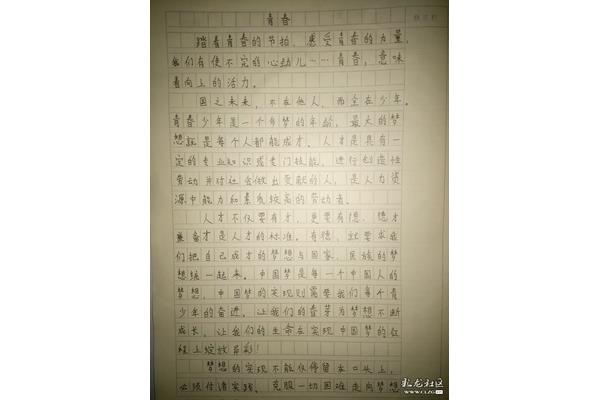 青春
踏着青春的节拍，感受青春的力量，
我们有使不完的心劲儿……青春，意味
着向上的活力。
国之未来，不在他人，而全在少年。
青春少年是一个多梦的年龄，最大的梦
想就是每个人都能成才。人才是具有一
定的专业知识或专门技能，进行创造性
劳动并对社会做出贡献的人，是人力资
源中能力和素质较高的劳动者。
人才不仅要有才，更要有德，德才
兼备才是人才的标准。有德，就要求我
们把自己成才的梦想与国家、民族的梦
想统一起来。中国梦是每一个中国人的
梦想，中国梦的实现则需要我们每个青
少年的奋进。让我们的青芽为梦想不断
成长，让我们的生命在实现中国梦的征
程上绽放异彩！
梦想的实现不能仅停留在口头上，
必须付诸实践，克服一切困难走向梦想
化龙社区
www.CLZG.cn